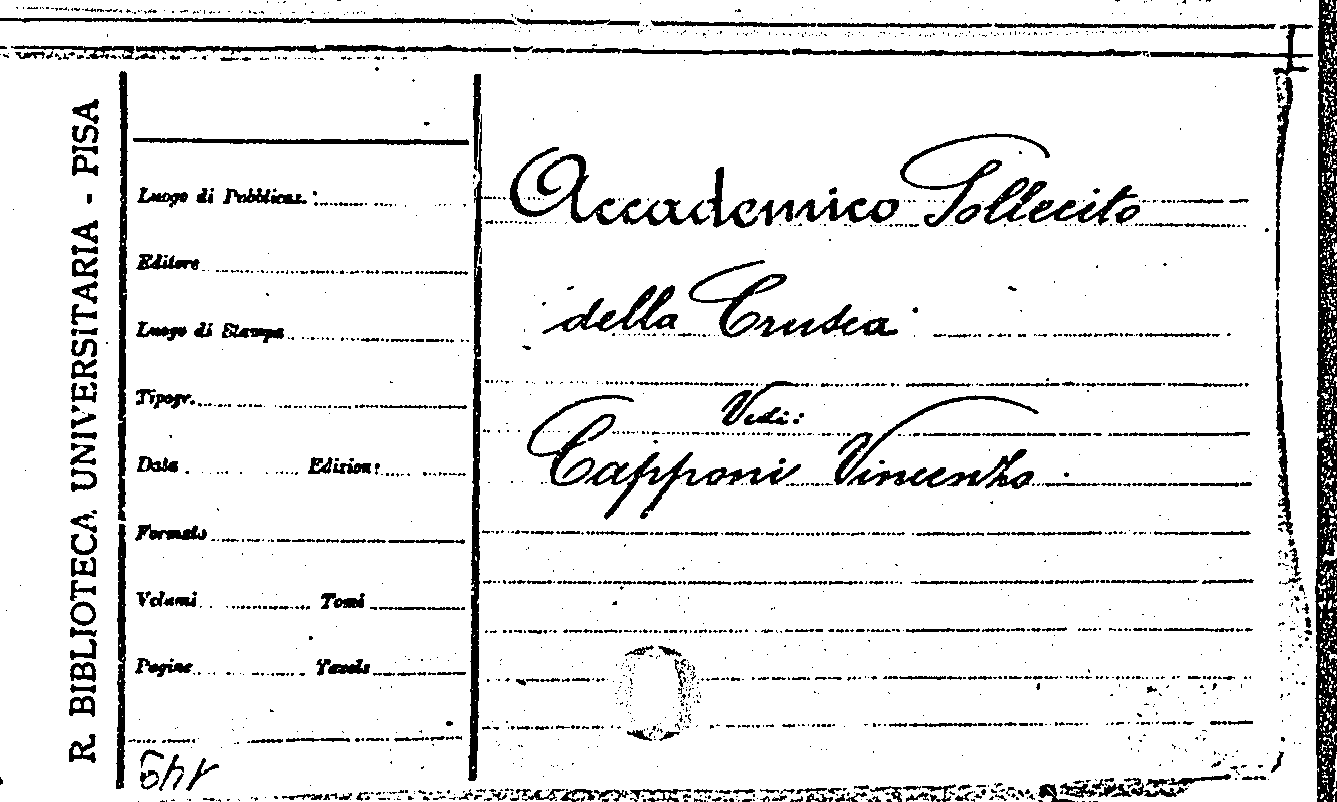 R. BIBLIOTECA UNIVERSITARIA - PISA
Luogo di Pubblicaz.
Editore
Luogo di Stampa
Tipogr.
Data Edizione
Formato
Volumi Tomi
Pagine Tavole
Accademico Sollecito
della Crusca.
Vedi:
Capponi Vincenzo.